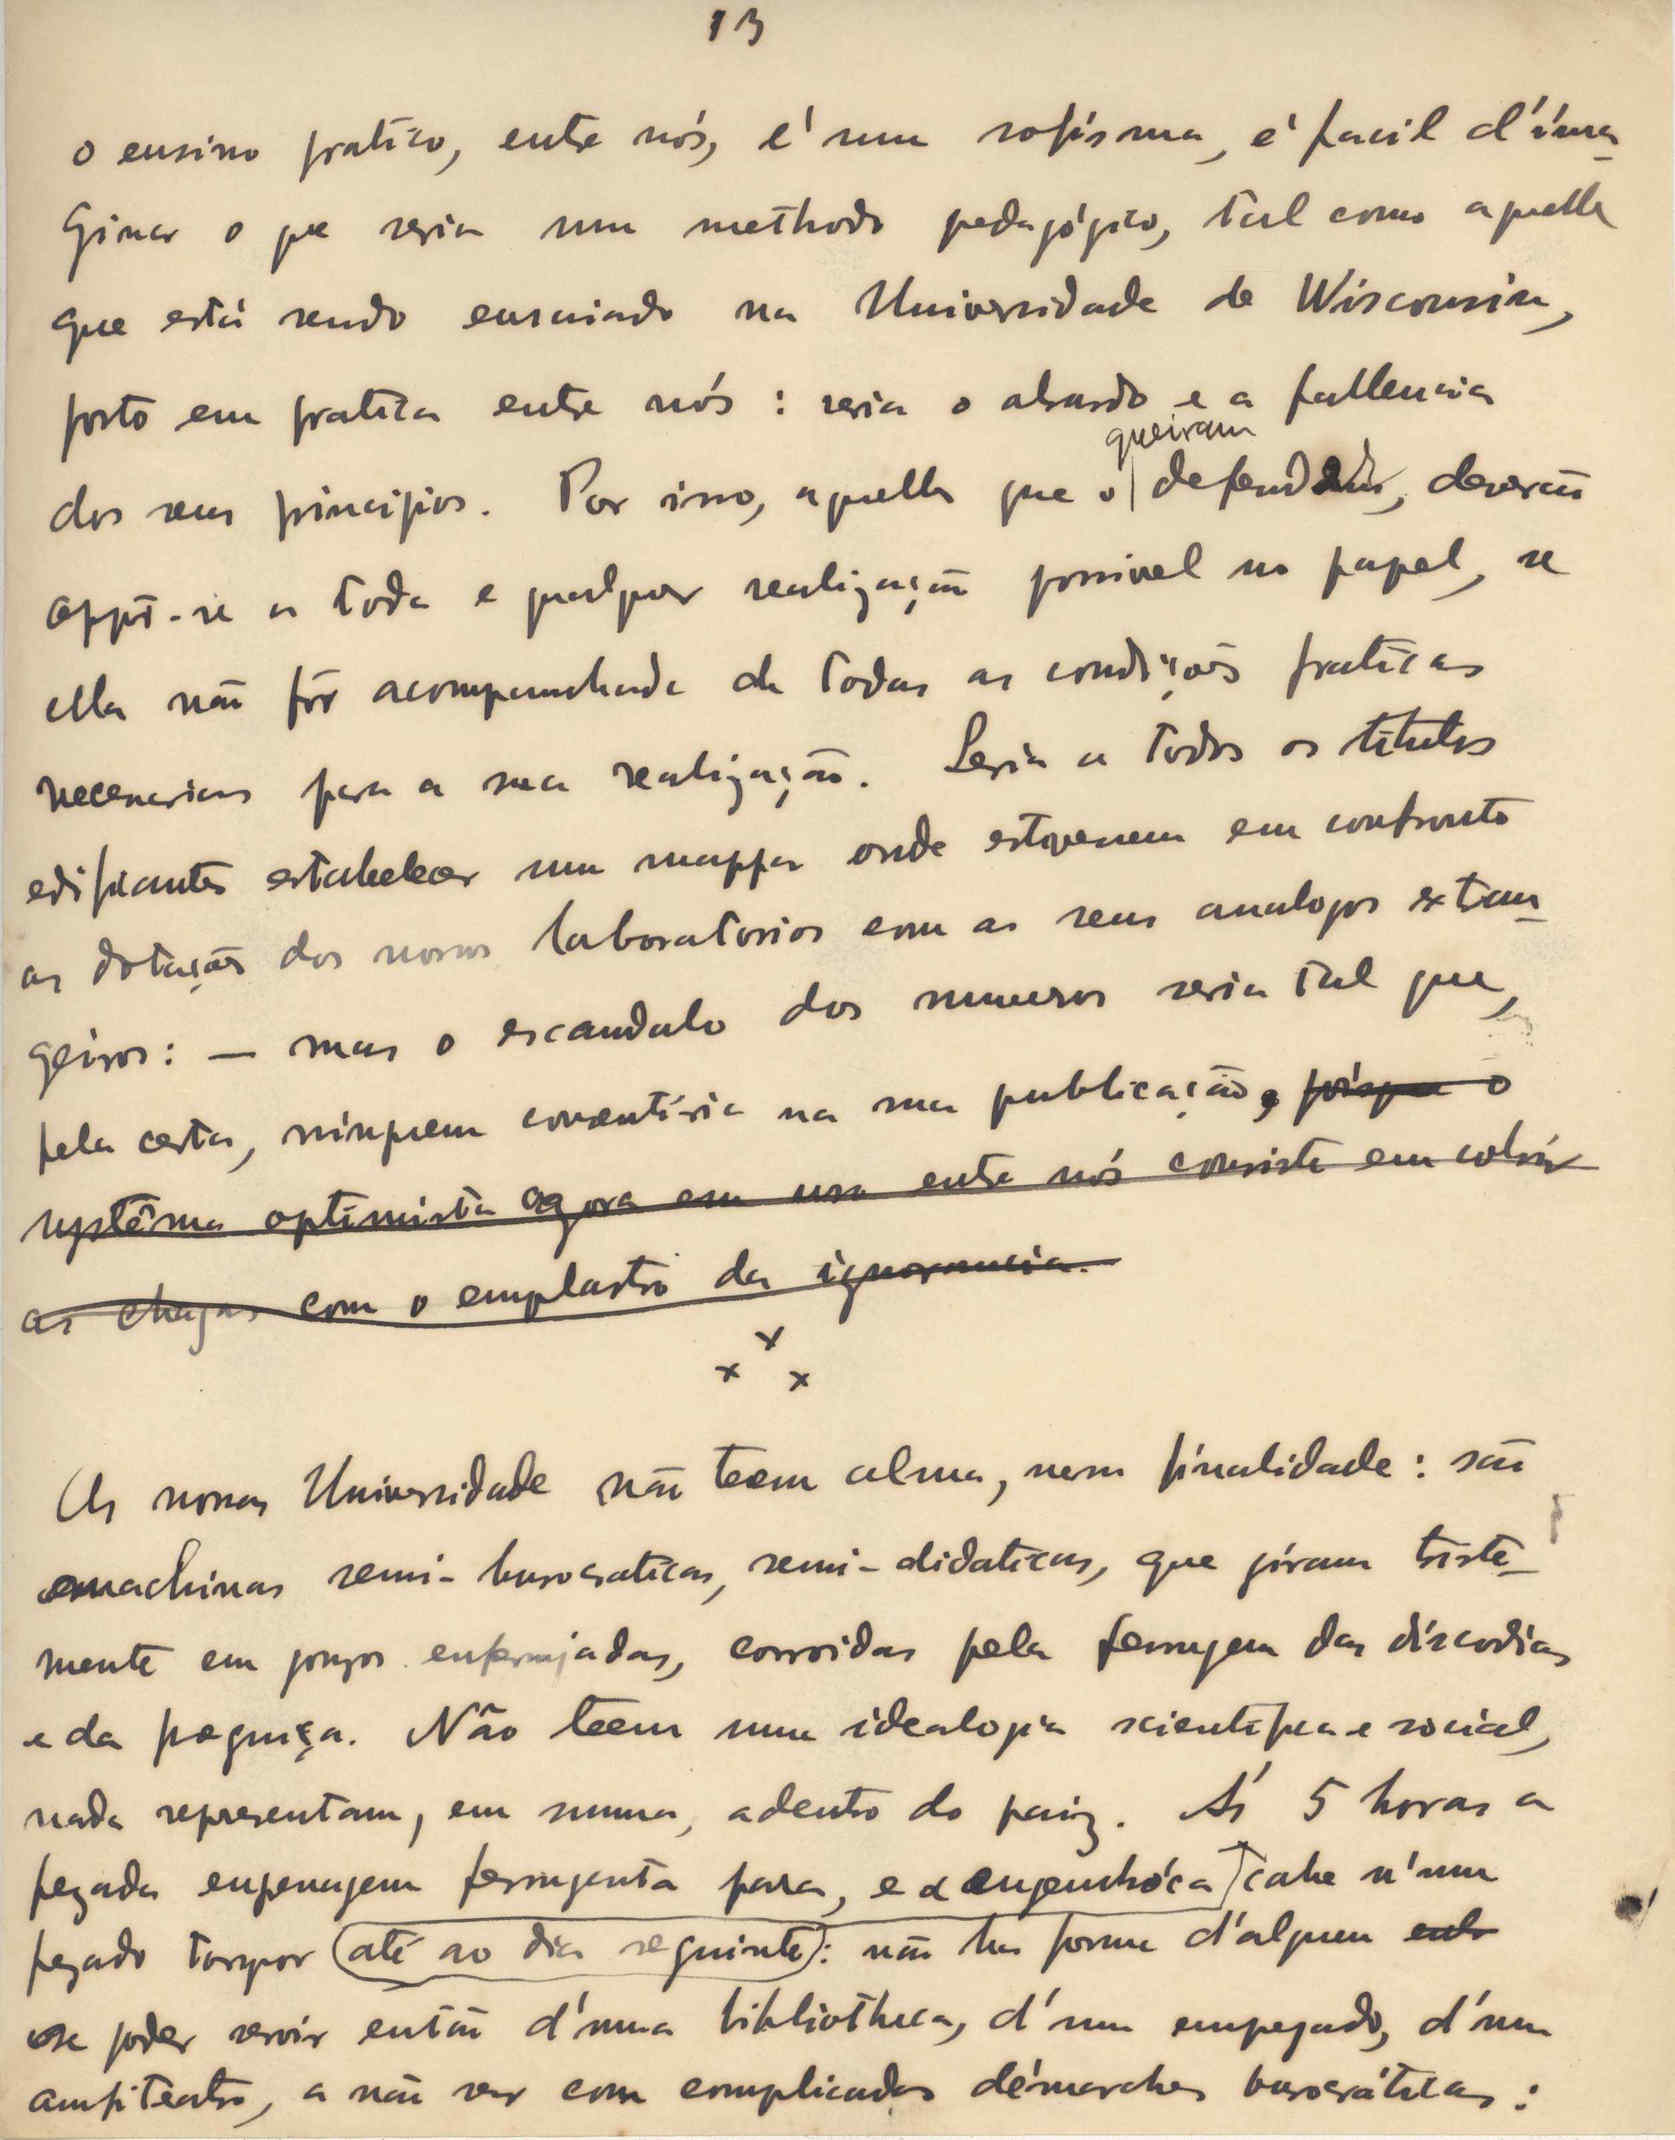 13
o ensino pratico, entre nós, é um sofisma, é facil d'ima-
ginar o que seria um methodo pedagógico, tal como aquelle
que está sendo ensaiado na Universidade de Wisconsin,
posto em pratica entre nós: seria o absurdo e a fallencia
queiram
dos seus principios. Por isso, aquelles que o defender, deverão
oppôr-se a toda e qualquer realização possivel no papel, se
ella não fôr acompanhada de todas as condições praticas
necessarias para a sua realização. Seria a todos os titulos
edificante estabelecer um mappa onde estivessem em confronto
as dotações dos nossos laboratorios com as seus analogos extran-
geiros: — mas o escandalo dos numeros seria tal que,
pela certa, ninguem consentiria na sua publicação, porque o
systêma optimista agora em uso entre nós consiste em cobrir
as chagas com o emplastro da ignorancia.
x
x x
As nossas Universidade não teem alma, nem finalidade: são
machinas semi-burocraticas, semi-didaticas, que giram triste-
mente em gonzos enferrujados, corroidas pela ferrugem das discordias
e da preguiça. Não teem uma idealogia scientifica e social,
nada representam, em summa, adentro do paiz. Ás 5 horas a
pezada engrenagem ferrugenta para, e a engenhóca cahe n'um
pezado torpor até ao dia seguinte: não ha forma d'alguem
se poder servir então d'uma bibliotheca, d'um empregado, d'um
anfiteatro, a não ser com complicadas démarches burocráticas: